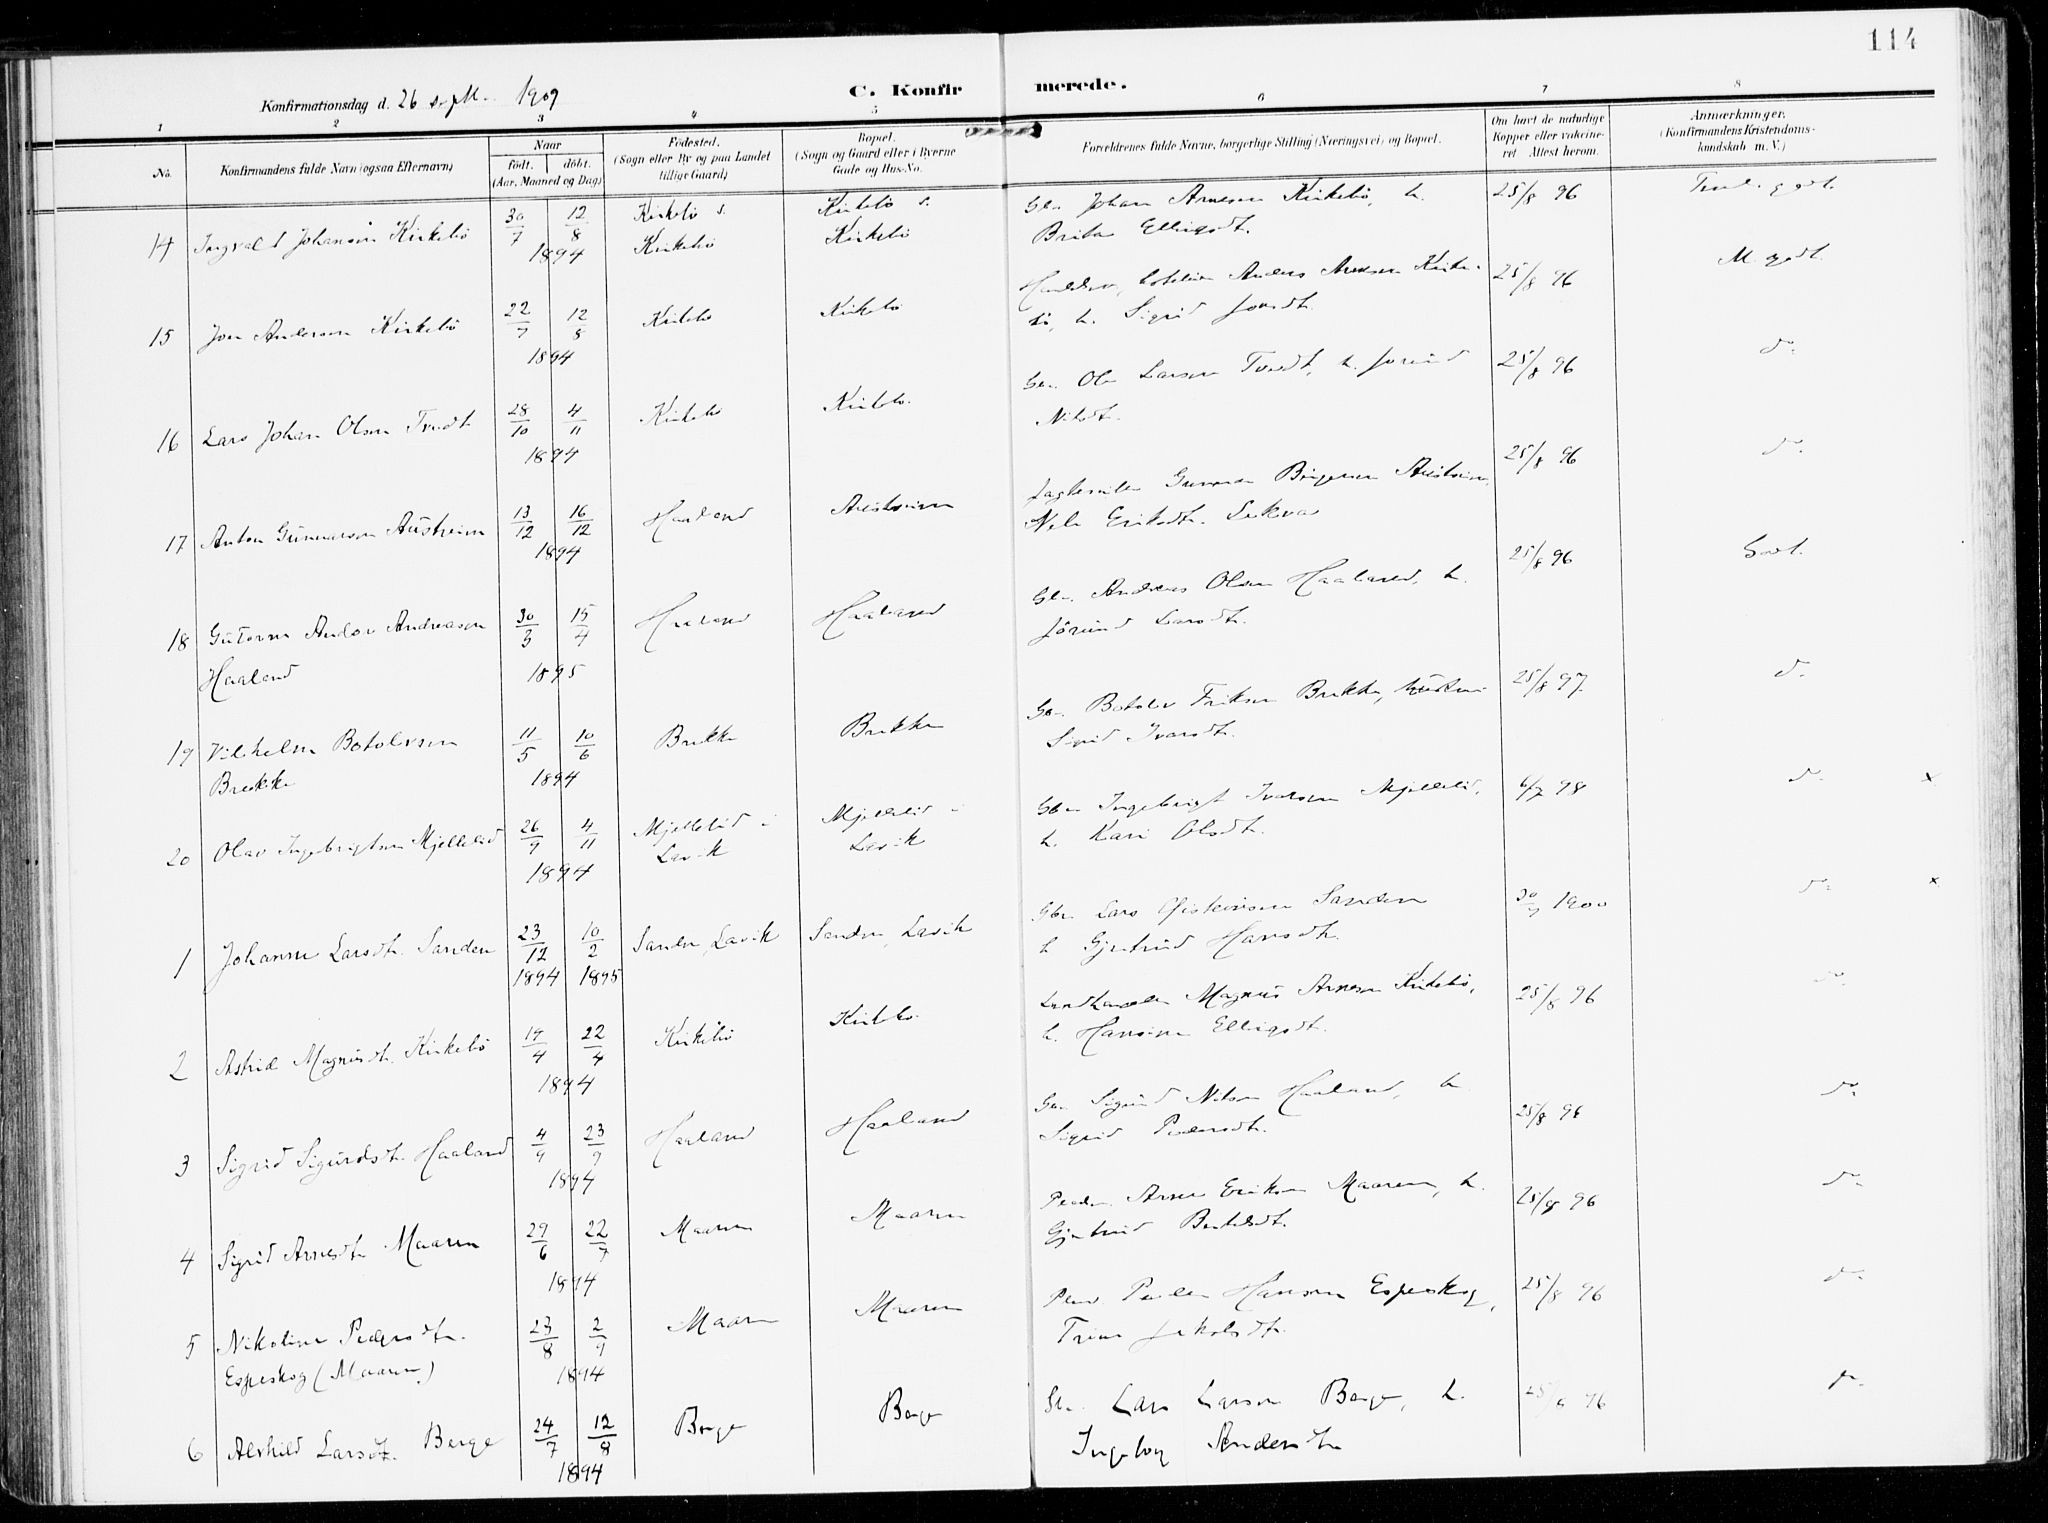 114
Konfirmationsdag d. 26 sept. 1909
C. Konfirmerede.
1 2 3 4 5 6 7 8
No.
Konfirmandens fulde Navn (ogsaa Efternavn)
Naar
födt. döbt.
(Aar, Maaned og Dag)
Födested.
(Sogn eller By og paa Landet
tillige Gaard)
Bopæl.
(Sogn og Gaard eller i Byerne
Gade og Hus-No.
Forældrenes fulde Navne, borgerlige Stilling (Næringsvei) og Bopæl.
Om havt de naturlige
Kopper eller vaccine-
ret Attest herom.
Anmærkninger.
(Konfirmandens Kristendoms-
kundskab m. V.)
14 Ingvald Johansen Kirkebö 30/7 12/8 1894 Kirkebö s. Kirkebö Kirkebö s. Kirkebö
Johan Arnesen Kirkebö, h.
Brita Ellingsdt. 25/8 96
15 Jon Andersen Kirkebö 22/7 12/8 1894 Kirkebö Kirkebö
Anders Arnesen Kirke-
bö, h. Sigrid Jonsdt. 25/8 96 M. godt.
16 Lars Johan Olsen Tvedt 28/10 4/11 1894 Kirkebö Kirkebö
Ole Larsen Tvedt, h. Jorund
Nilsdt. 25/8 96 do.
17 Anton Gunnarsen Austreim 13/12 16/12 1894 Haaland Austreim
Gunnar Birgersen Austreim,
Eriksdt. 25/8 96 do.
18 Gutorm Andor Andreasen
Haaland 30/3 15/4 1895 Haaland Haaland
Andreas Olsen Haaland, h.
Jörund Larsdt. 25/8 96 Godt.
19 Vilhelm Botolvsen
Brekke 11/5 10/6 1894 Brekke Brekke
Botolv Eriksen Brekke, hustru
Sigrid Ivarsdt. 25/8 97 do.
20 Olav Ingebrigtsen Mjellelid 26/9 4/11 1894 Mjellelid i
Lavik Mjellelid i
Lavik
Gbr. Ingebrigt Ivarsen Mjellelid,
h. Kari Olsdt. 6/7 98 do. x
1 Johanne Larsdt. Sanden 23/12 1894 10/2 1895 Sanden, Lavik Sanden, Lavik
Gbr. Lars Öisteinsen Sanden
h. Gjertrud Hansdt. 1900 do. x
2 Astrid Magnusdt. Kirkebö 22/4 1894 Kirkebö Kirkebö
Landhandler Magnus Arnesen Kirkebö,
h. Hansine Ellingsdt. 25/8 96 do.
3 Sigrid Sigurdsdt. Haaland 4/9 23/9 1894 Haaland Haaland
Sigurd Nilsen Haaland, h.
Sigrid Pedersdt. 25/8 96 do.
4 Sigrid Arnesdt. Maaren 29/6 22/7 1894 Maaren Maaren
Arne Eriksen Maaren, h.
Gjertrud Bertelsdt. 25/8 96 do.
5 Nikoline Pedersdt.
Espeskog (Maaren) 23/8 2/9 1894 Maaren Maaren
Peder Hansen Espeskog,
Trine Jakobsdt. 25/8 96 do.
6 Alvhild Larsdt. Berge 24/7 12/8 1894 Berge Berge
Lars Larsen Berge, h.
Ingeborg Andersdt. 25/8 96 do.